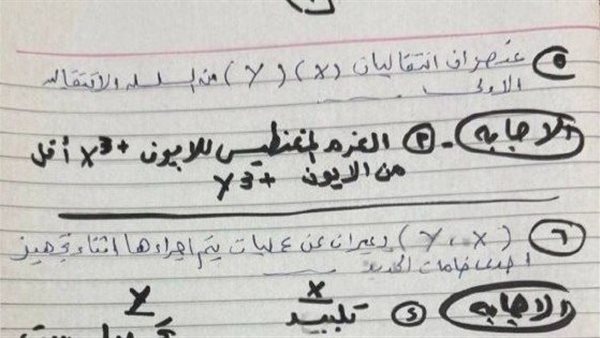 ٥ عنصران انتقاليان (X) (Y) من السلسلة الانتقالية
الأولى
الاجابه - ٣ العزم المغناطيس للايون X³⁺ أقل
من الايون Y³⁺
٦ (Y , X) يعبران عن عمليات يتم اجراءها اثناء تجهيز
احد خامات الحديد
الاجابه ٤ X Y
تلبيد